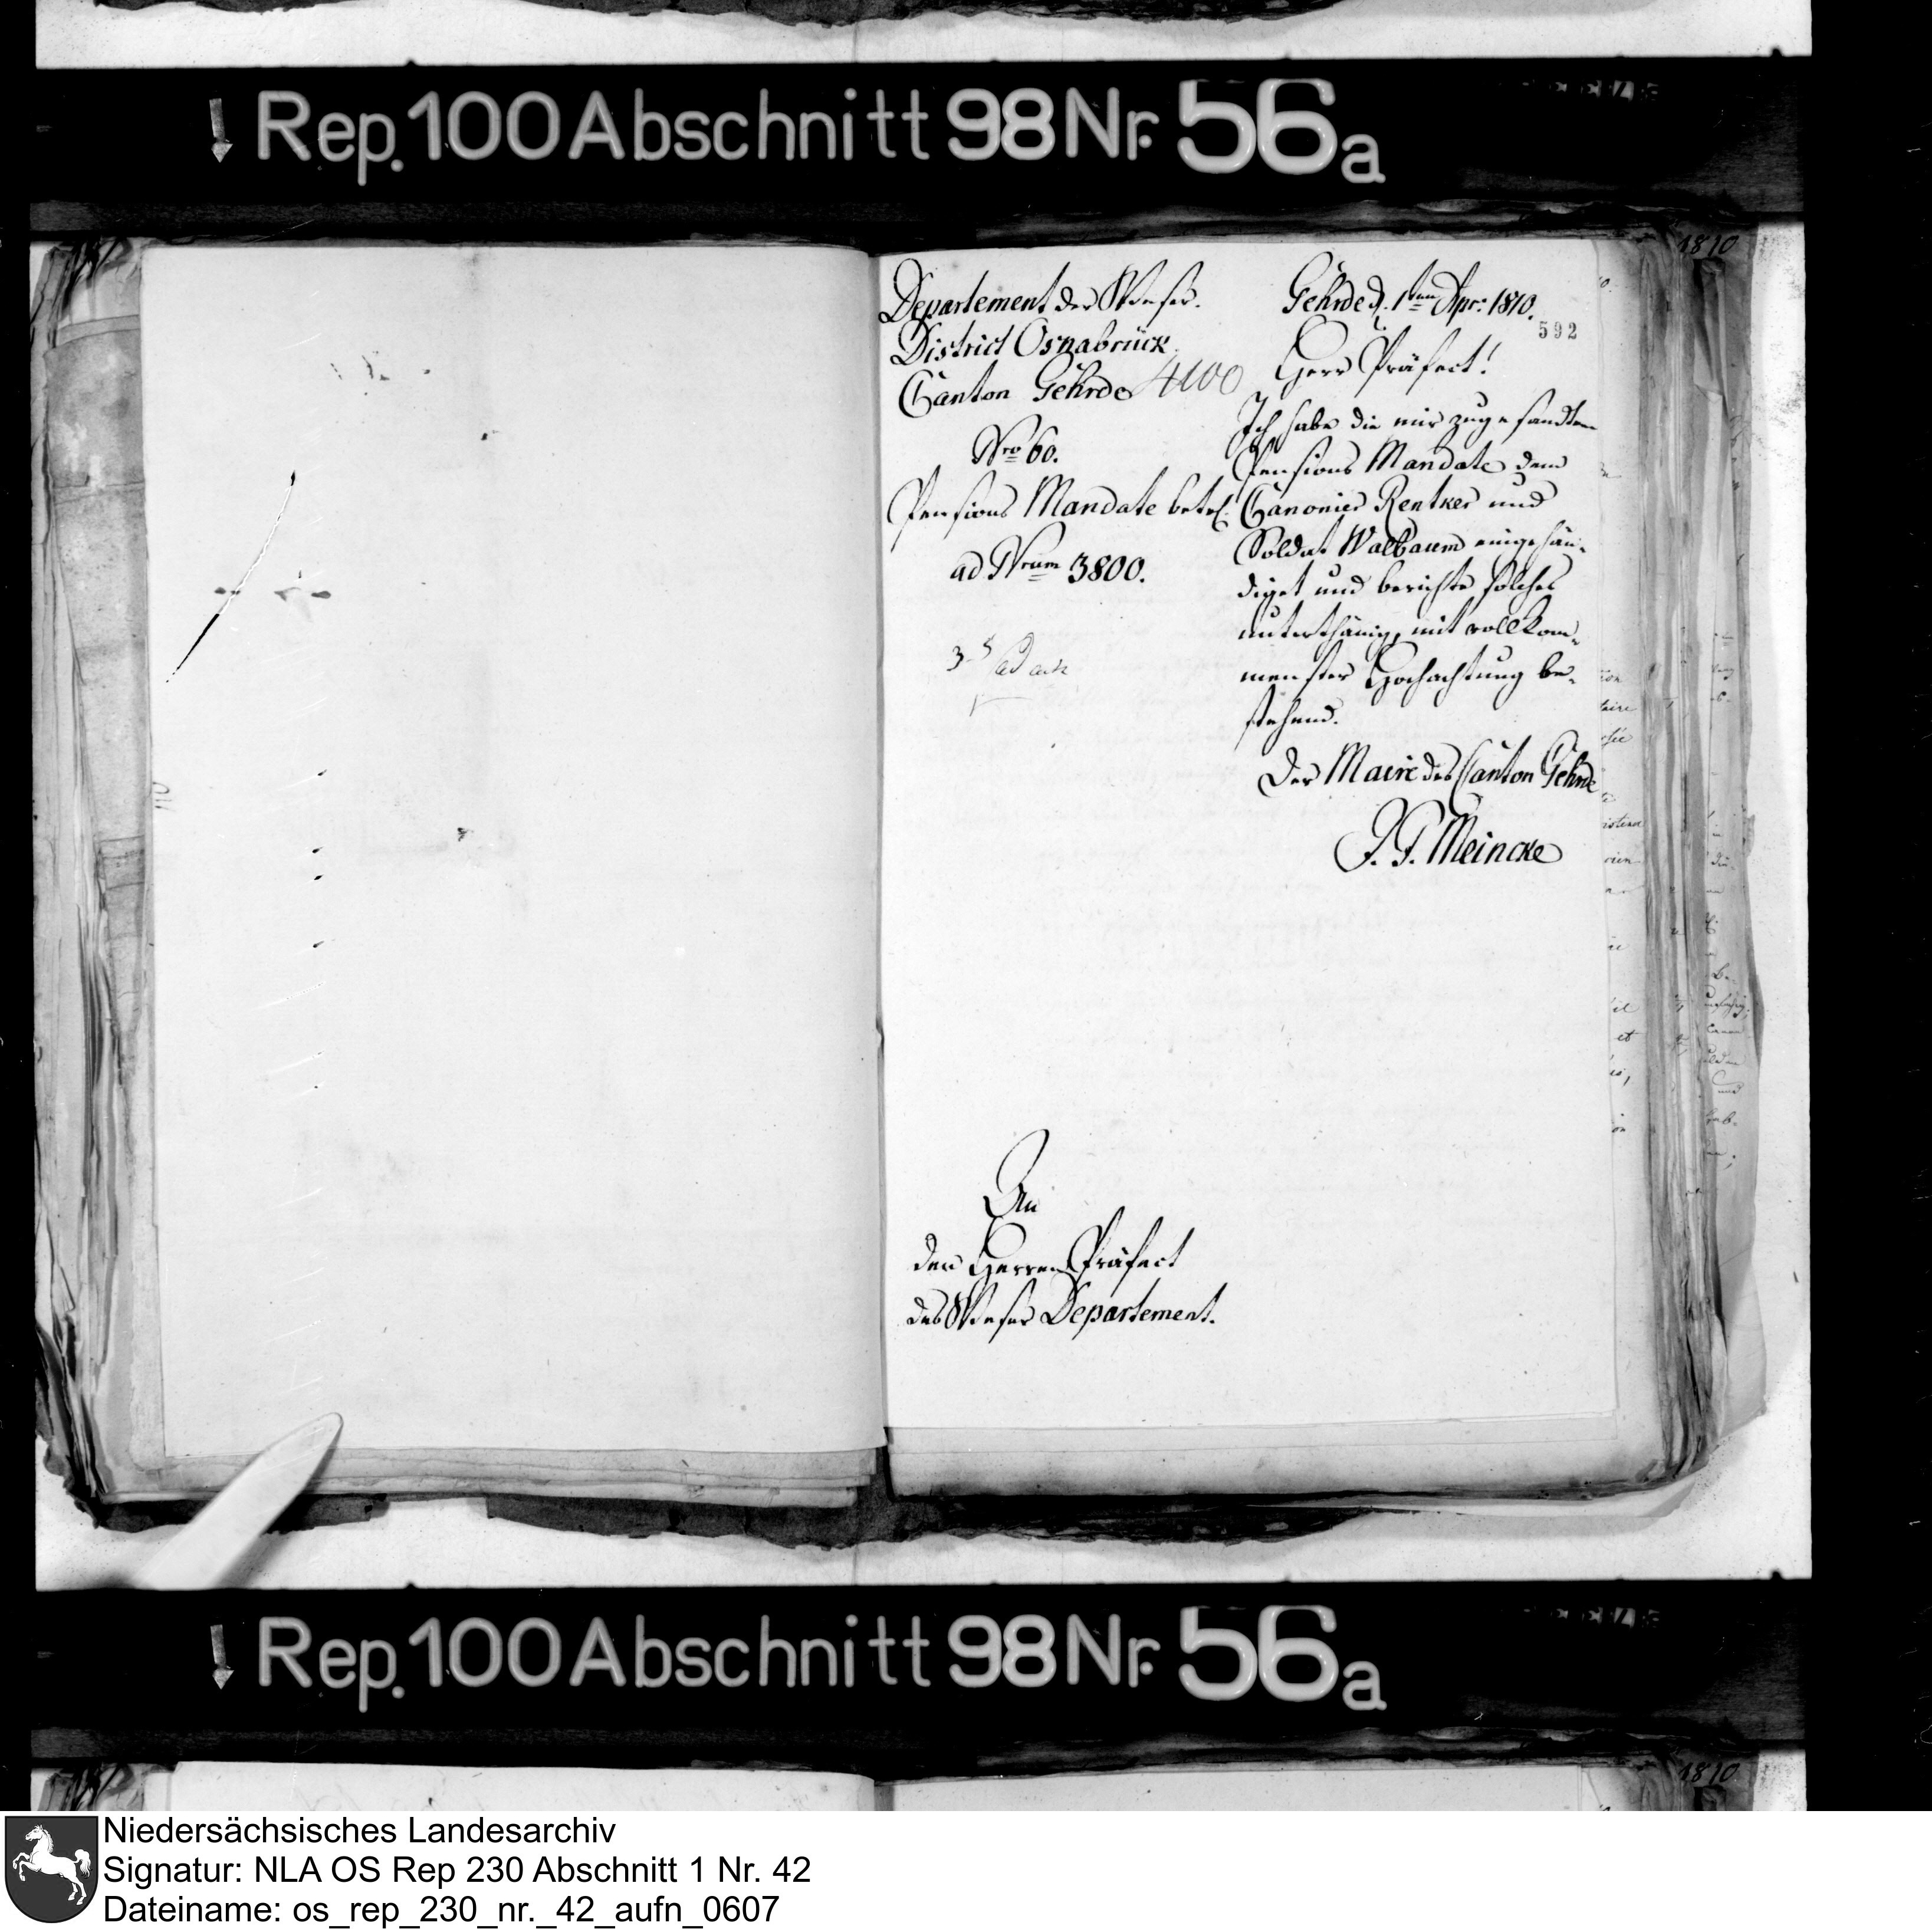 Rep. 100 Abschnitt 98 Nr. 56a
1810
Departement der Weser.
District Osnabrück.
Canton Gehrde
4100
Nro 60.
Pensions Mandate betr.
ad Nrum 3800.
ad acta
Gehrde d. 1ten Apr: 1810.
592
Herr Präfect!
Ich habe die mir zugesandten
Pensions Mandate dem
Canonier Rentker und
Soldat Walbaum eingehän-
diget und berichte solches
unterthänig, mit vollkom-
menster Hochachtung be-
stehend.
Der Maire des Canton Gehrde
J. F. Meincke
An
den Herren Präfect
des Weser Departement.
Rep. 100 Abschnitt 98 Nr. 56a
1810
Niedersächsisches Landesarchiv
Signatur: NLA OS Rep 230 Abschnitt 1 Nr. 42
Dateiname: os_rep_230_nr._42_aufn_0607